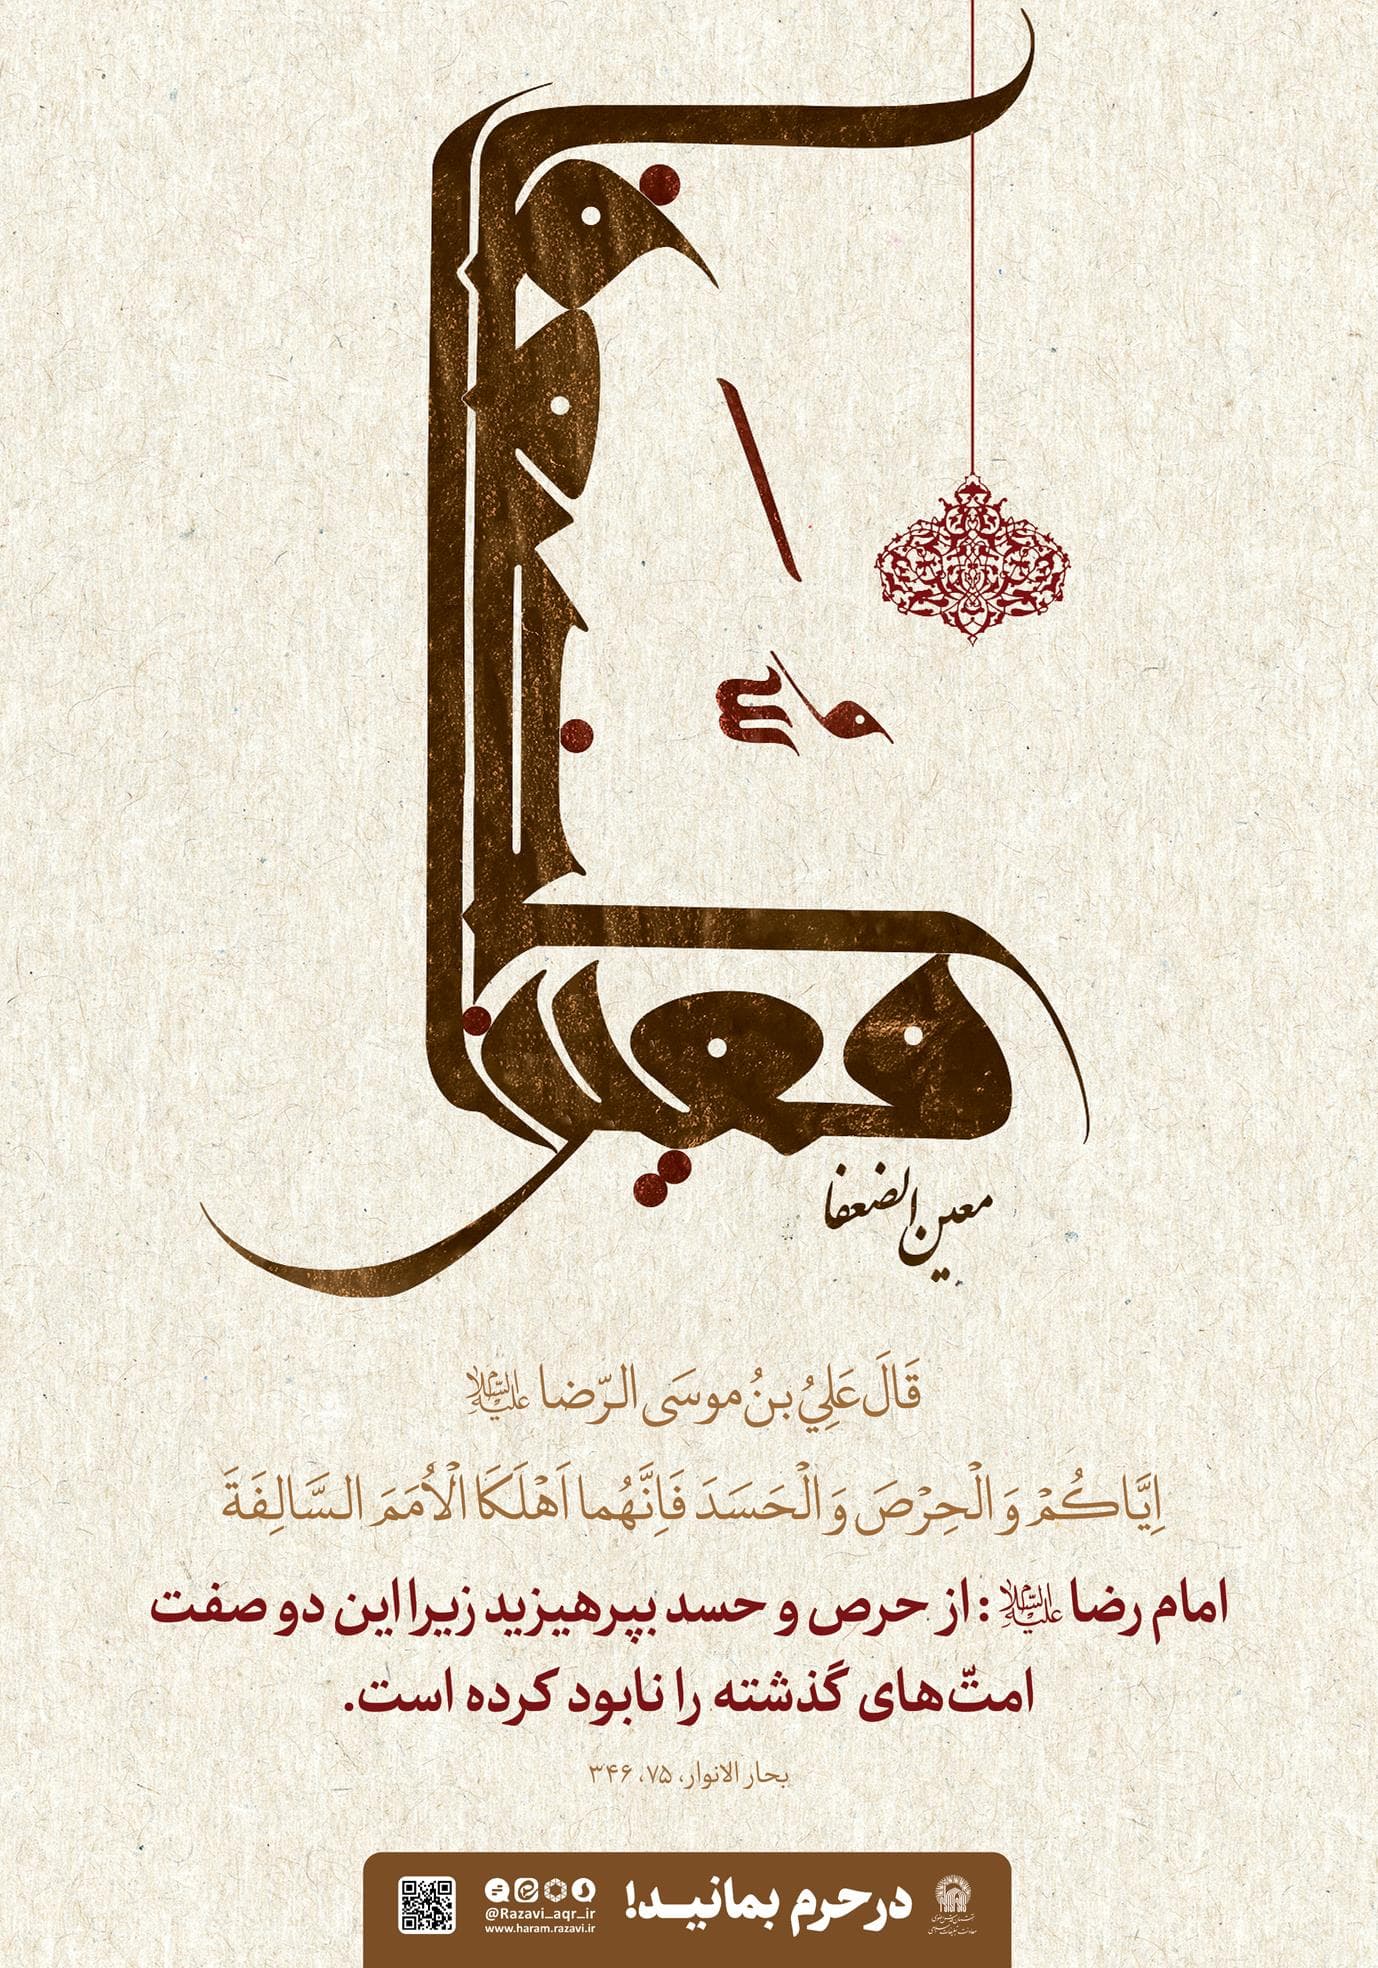 معین الضعفا
معین الضعفا
قَالَ عَلِيُ بنُ موسَی الرّضا علیه السلام
اِیَّاکُمْ وَ الْحِرْصَ وَ الْحَسَدَ فَاِنَّهُما اَهْلَکَا الْاُمَمَ السَّالِفَةَ
امام رضا علیه السلام : از حرص و حسد بپرهیزید زیرا این دو صفت
امتّ‌های گذشته را نابود کرده است.
بحار الانوار، ۷۵، ۳۴۶
در حرم بمانید!
@Razavi_aqr_ir
www.haram.razavi.ir